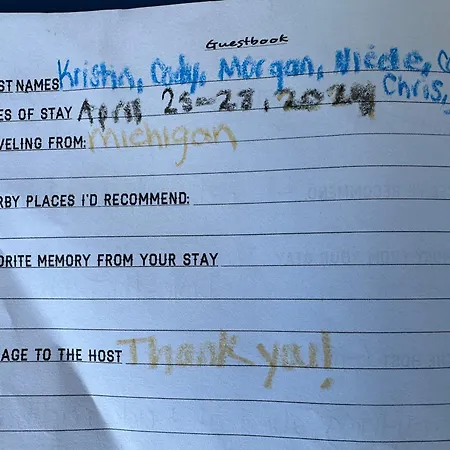 Guestbook
ST NAMES Kristin, Cody, Morgan, Nicole,
ES OF STAY April 23-27, 2024 Chris,
VELING FROM: michigan
RBY PLACES I'D RECOMMEND:
ORITE MEMORY FROM YOUR STAY
AGE TO THE HOST Thank you!